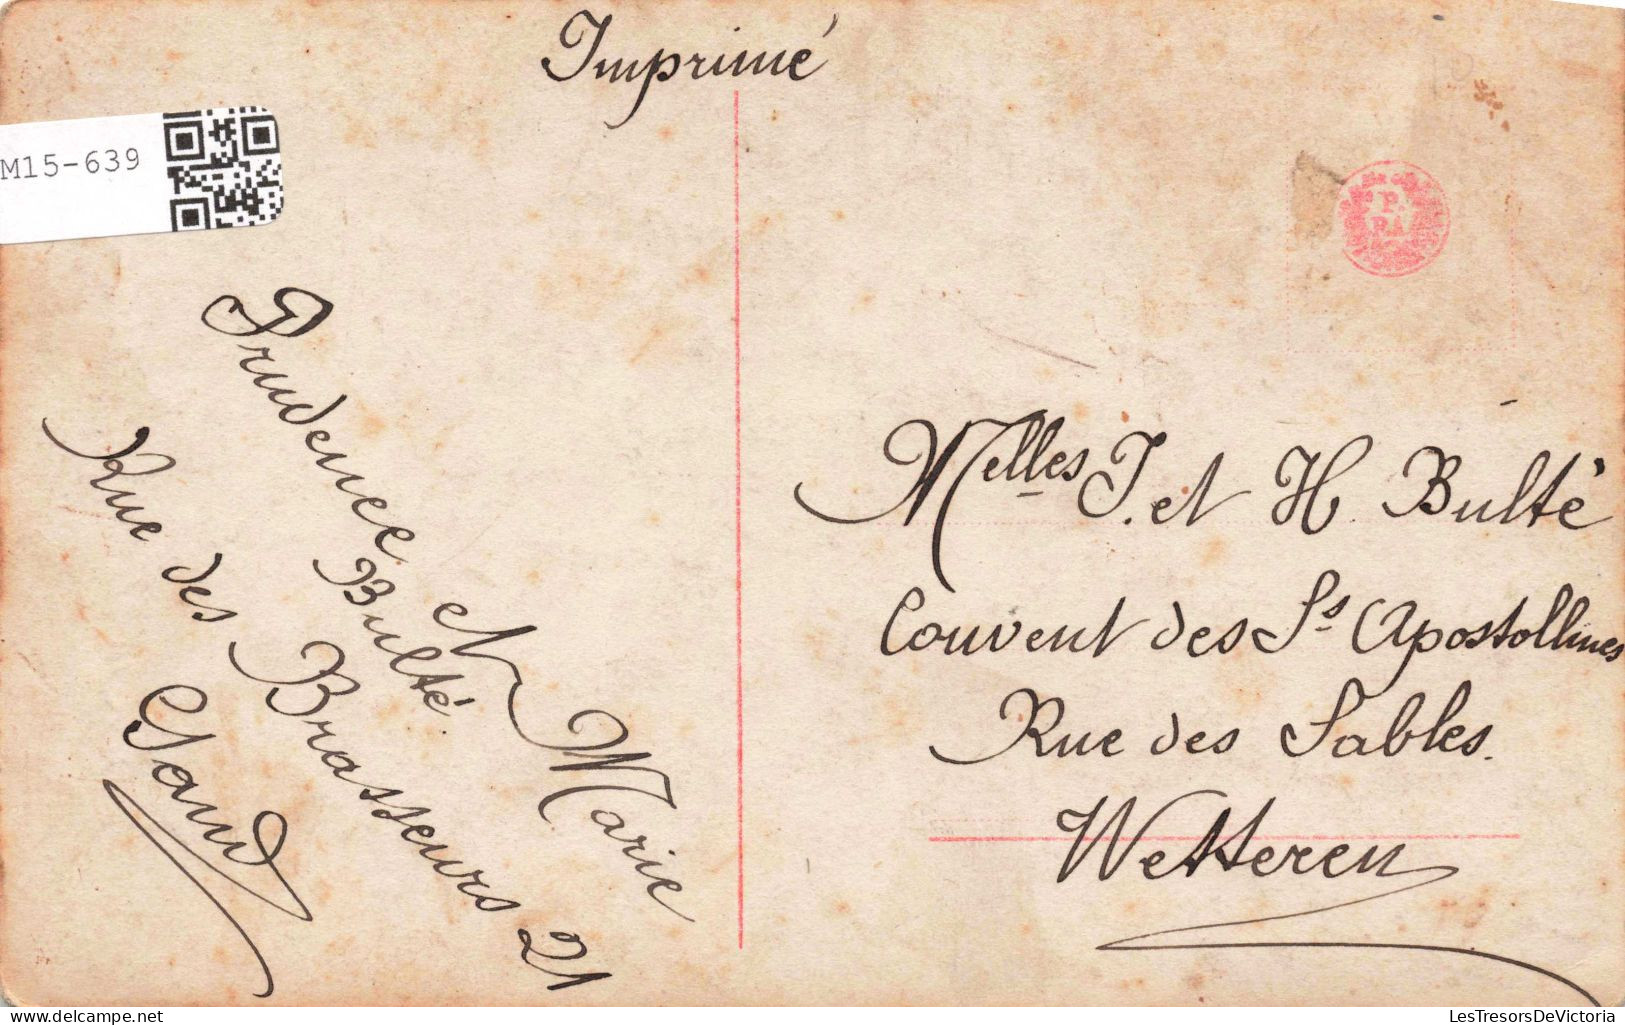 Imprimé
M15-639
P.
RA
Prudence et Marie
Bulté.
Rue des Brasseurs 21
Gand
Melles J. et H. Bulté
Couvent des Ss Apostollines
Rue des Sables.
Wetteren
delcampe.net
LesTresorsDeVictoria